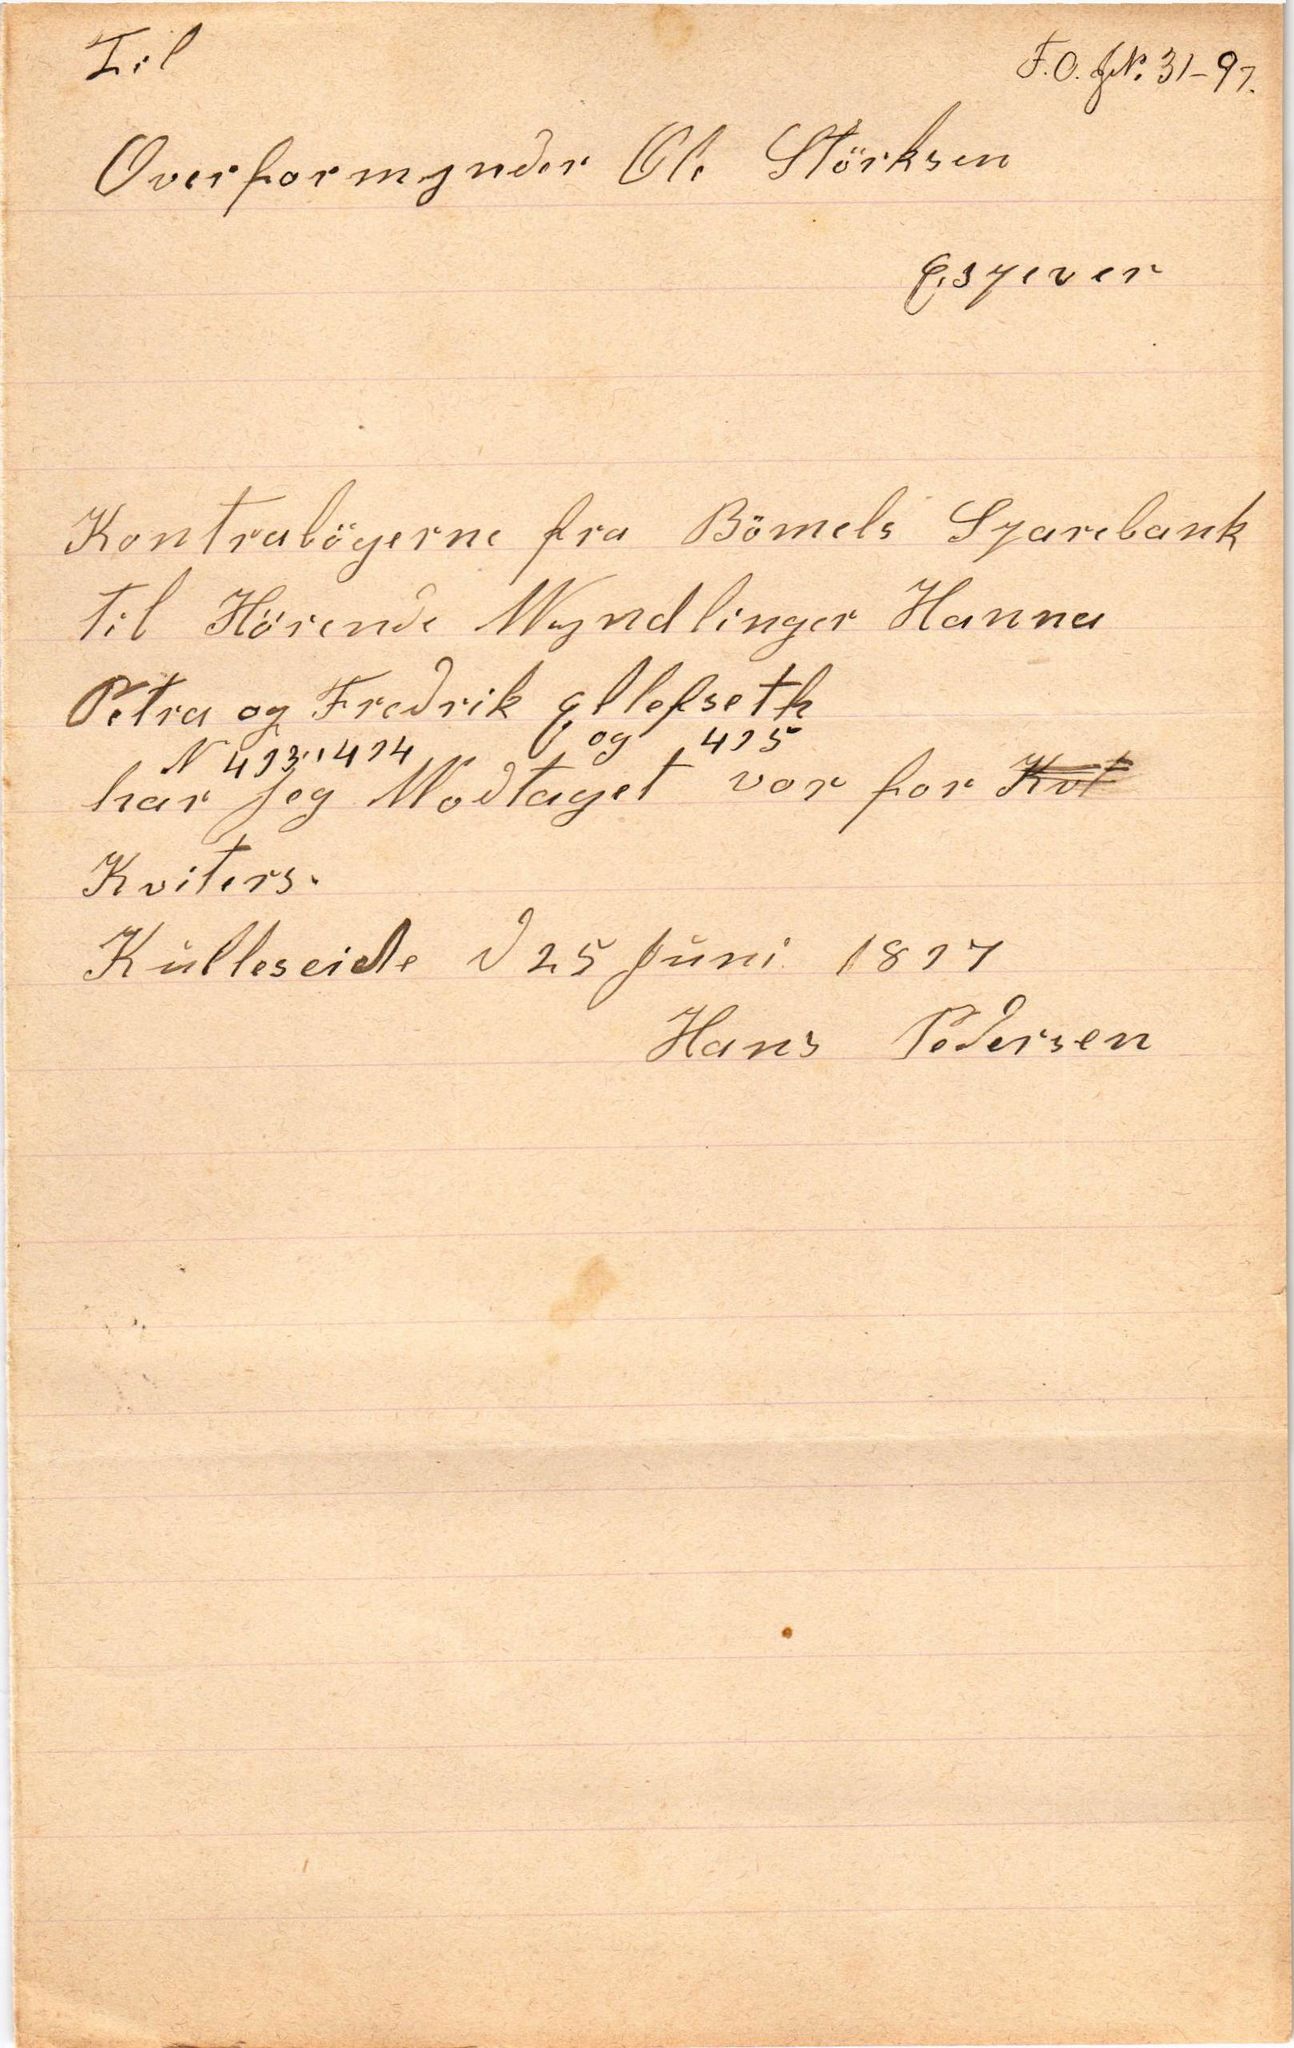 Til
F.O. JN. 31-97.
Overformynder Ole Störksen
Espever
Kontrabögerne fra Bömels Sparebank
til Hørende Myndlinger Hanna
Petra og Fredrik Ellefseth
N 413, 414 og 415
har Jeg Modtaget vor for Kvt
Kviters.
Kulleseide d 25 Juni 1897
Hans Pedersen